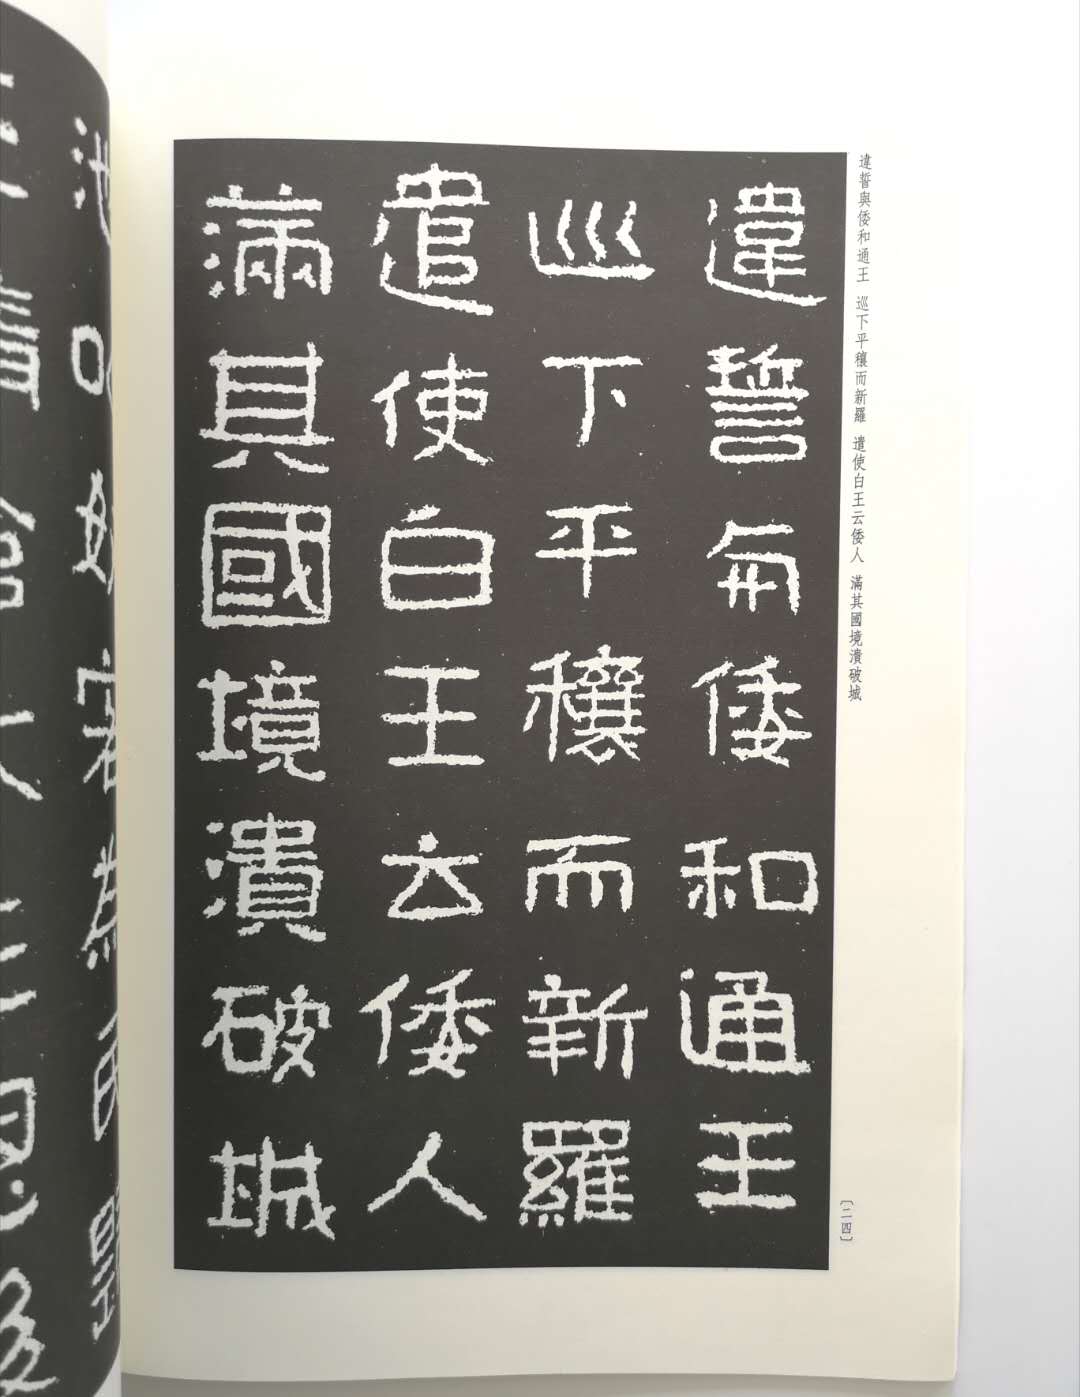 違誓與倭和通王 巡下平穰而新羅 遣使白王云倭人 滿其國境潰破城
〔二四〕
違誓与倭和通王
巡下平穰而新羅
遣使白王云倭人
滿其國境潰破城
池以奴客為民歸